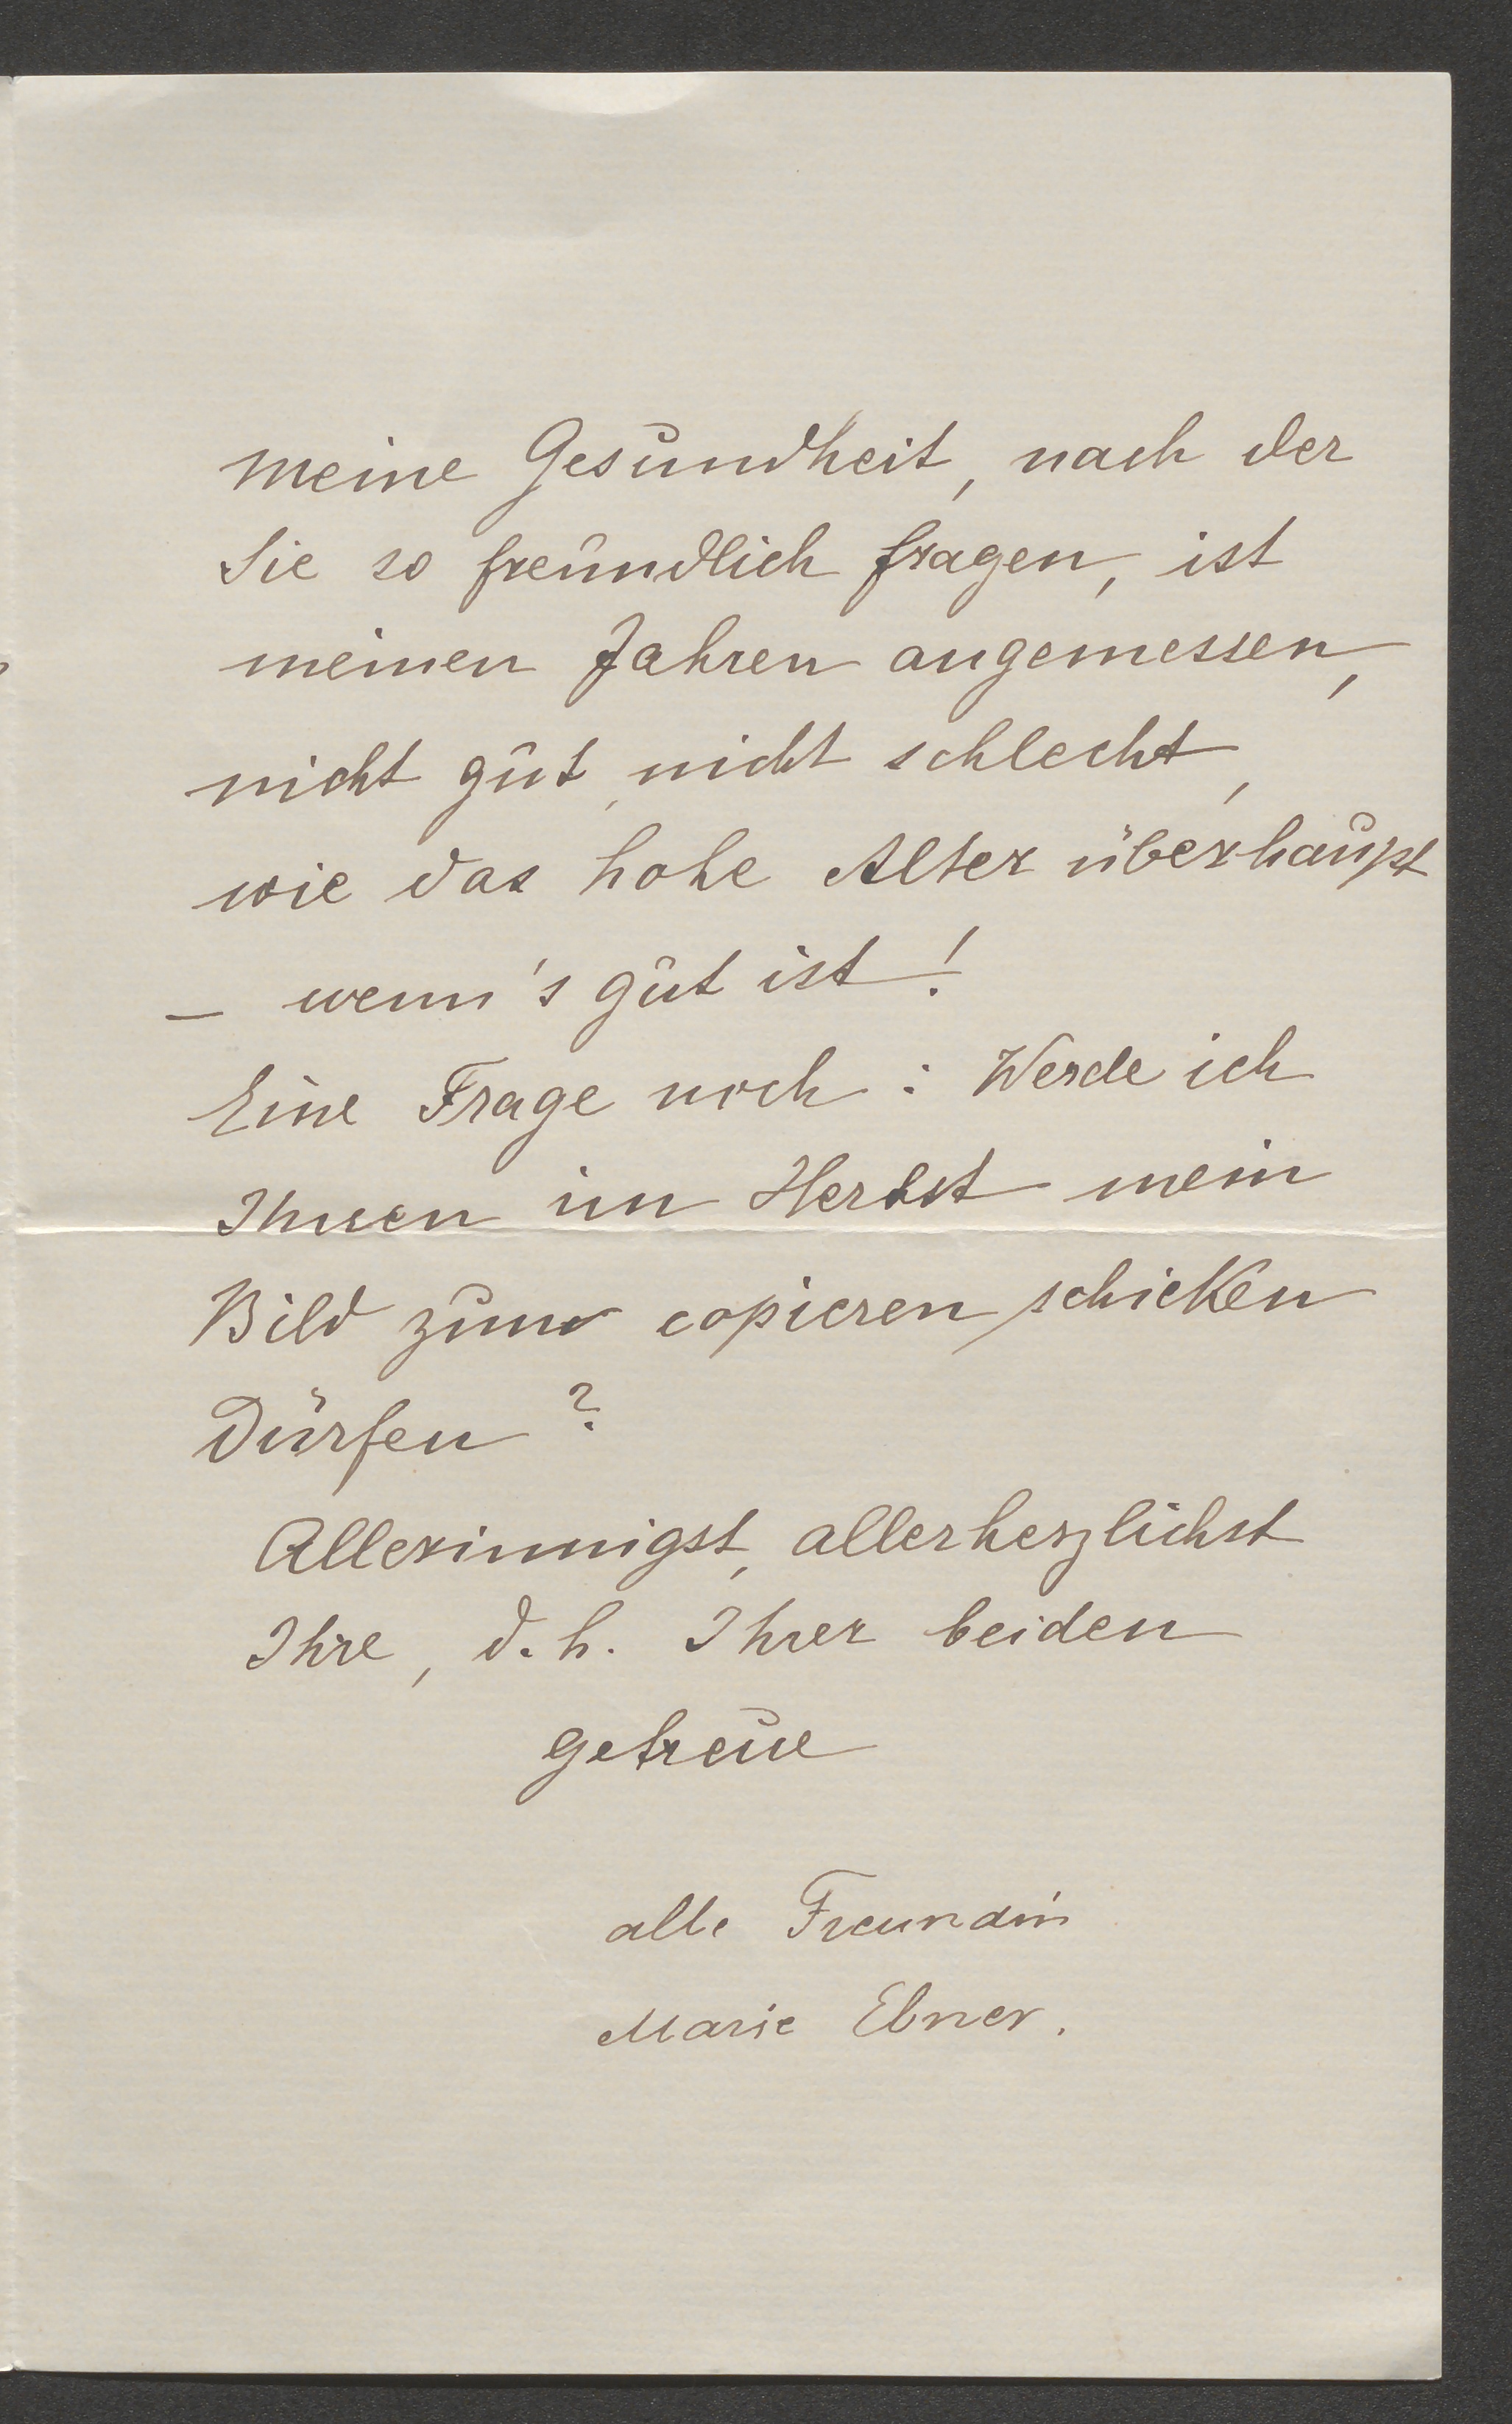 meine Gesundheit, nach der
Sie so freundlich fragen, ist
meinen Jahren angemessen,
nicht gut, nicht schlecht,
wie das hohe Alter überhaupt
– wenn's gut ist!
Eine Frage noch: Werde ich
Ihnen im Herbst mein
Bild zum copieren schicken
dürfen?
Allerinnigst, allerherzlichst
Ihre, d. h. Ihrer beiden
getreue
alte Freundin
Marie Ebner.